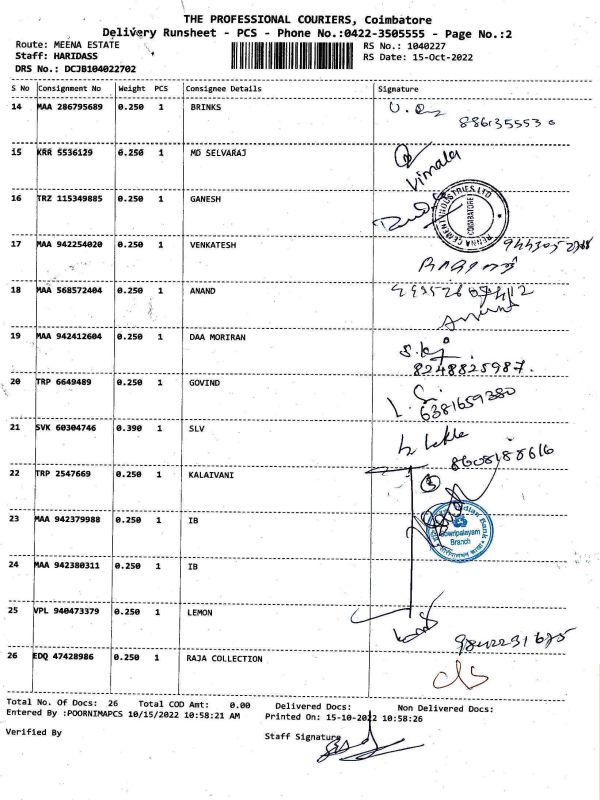 THE PROFESSIONAL COURIERS, Coimbatore
Delivery Runsheet - PCS - Phone No.:0422-3505555 - Page No.:2
Route: MEENA ESTATE RS No.: 1040227
Staff: HARIDASS RS Date: 15-Oct-2022
DRS No.: DCJB104022702
S No Consignment No Weight PCS Consignee Details Signature
14 MAA 286795689 0.250 1 BRINKS
8861355530
15 KRR 5536129 0.250 1 MD SELVARAJ
Vimala
16 TRZ 115349885 0.250 1 GANESH
COIMBATORE
17 MAA 942254020 0.250 1 VENKATESH
18 MAA 568572404 0.250 1 ANAND
19 MAA 942412604 0.250 1 DAA MORIRAN
8248825987.
20 TRP 6649489 0.250 1 GOVIND
6381659380
21 SVK 60304746 0.390 1 SLV
8608188616
22 TRP 2547669 0.250 1 KALAIVANI
23 MAA 942379988 0.250 1 IB
Gowripalayam
Branch
24 MAA 942380311 0.250 1 IB
25 VPL 940473379 0.250 1 LEMON
26 EDQ 47428986 0.250 1 RAJA COLLECTION
Total No. Of Docs: 26 Total COD Amt: 0.00 Delivered Docs: Non Delivered Docs:
Entered By :POORNIMAPCS 10/15/2022 10:58:21 AM Printed On: 15-10-2022 10:58:26
Verified By Staff Signature